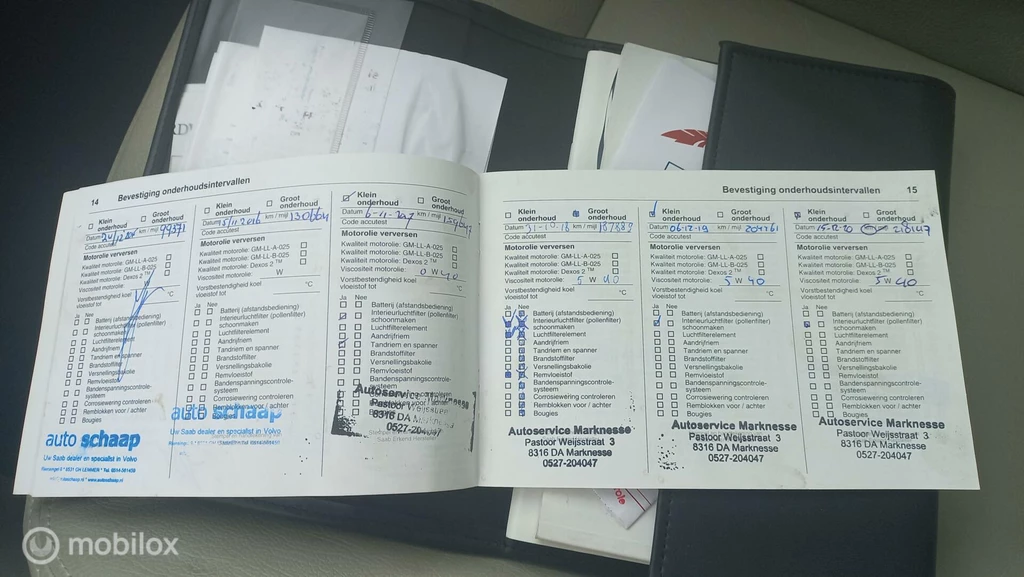 14 Bevestiging onderhoudsintervallen
Klein onderhoud Groot onderhoud
Datum km / mijl 99371
Code accutest
Motorolie verversen
Kwaliteit motorolie: GM-LL-A-025
Kwaliteit motorolie: GM-LL-B-025
Kwaliteit motorolie: Dexos 2 TM
Viscositeit motorolie: W
Vorstbestendigheid koel
vloeistof tot °C
Ja Nee
Batterij (afstandsbediening)
Interieurluchtfilter (pollenfilter)
schoonmaken
Luchtfilterelement
Aandrijfriem
Tandriem en spanner
Brandstoffilter
Versnellingsbakolie
Remvloeistof
Bandenspanningscontrole-
systeem
Corrosiewering controleren
Remblokken voor / achter
Bougies
auto schaap
Uw Saab dealer en specialist in Volvo
www.autoschaap.nl
Klein onderhoud Groot onderhoud
Datum 11 2016 km / mijl 130664
Code accutest
Motorolie verversen
Kwaliteit motorolie: GM-LL-A-025
Kwaliteit motorolie: GM-LL-B-025
Kwaliteit motorolie: Dexos 2 TM
Viscositeit motorolie: W
Vorstbestendigheid koel
vloeistof tot °C
Ja Nee
Batterij (afstandsbediening)
Interieurluchtfilter (pollenfilter)
schoonmaken
Luchtfilterelement
Aandrijfriem
Tandriem en spanner
Brandstoffilter
Versnellingsbakolie
Remvloeistof
Bandenspanningscontrole-
systeem
Corrosiewering controleren
Remblokken voor / achter
auto schaap
Uw Saab dealer en specialist in Volvo
Klein onderhoud Groot onderhoud
Datum 6-11-2017 km / mijl
Code accutest
Motorolie verversen
Kwaliteit motorolie: GM-LL-A-025
Kwaliteit motorolie: GM-LL-B-025
Kwaliteit motorolie: Dexos 2 TM
Viscositeit motorolie: 0 W 40
Vorstbestendigheid koel
vloeistof tot °C
Ja Nee
Batterij (afstandsbediening)
Interieurluchtfilter (pollenfilter)
schoonmaken
Luchtfilterelement
Aandrijfriem
Tandriem en spanner
Brandstoffilter
Versnellingsbakolie
Remvloeistof
Bandenspanningscontrole-
systeem
Autoservice Marknesse
Pastoor Weijsstraat
8316 DA
0527-204047
Bevestiging onderhoudsintervallen 15
Klein onderhoud Groot onderhoud
Datum 31-10-18 km / mijl 187887
Code accutest
Motorolie verversen
Kwaliteit motorolie: GM-LL-A-025
Kwaliteit motorolie: GM-LL-B-025
Kwaliteit motorolie: Dexos 2 TM
Viscositeit motorolie: 5 W 40
Vorstbestendigheid koel
vloeistof tot °C
Ja Nee
Batterij (afstandsbediening)
Interieurluchtfilter (pollenfilter)
schoonmaken
Luchtfilterelement
Aandrijfriem
Tandriem en spanner
Brandstoffilter
Versnellingsbakolie
Remvloeistof
Bandenspanningscontrole-
systeem
Corrosiewering controleren
Remblokken voor / achter
Bougies
Autoservice Marknesse
Pastoor Weijsstraat 3
8316 DA Marknesse
0527-204047
Klein onderhoud Groot onderhoud
Datum 06-12-19 km / mijl 204761
Code accutest
Motorolie verversen
Kwaliteit motorolie: GM-LL-A-025
Kwaliteit motorolie: GM-LL-B-025
Kwaliteit motorolie: Dexos 2 TM
Viscositeit motorolie: 5 W 40
Vorstbestendigheid koel
vloeistof tot °C
Ja Nee
Batterij (afstandsbediening)
Interieurluchtfilter (pollenfilter)
schoonmaken
Luchtfilterelement
Aandrijfriem
Tandriem en spanner
Brandstoffilter
Versnellingsbakolie
Remvloeistof
Bandenspanningscontrole-
systeem
Corrosiewering controleren
Remblokken voor / achter
Bougies
Autoservice Marknesse
Pastoor Weijsstraat 3
8316 DA Marknesse
0527-204047
Klein onderhoud Groot onderhoud
Datum 15-12-20 218147
Code accutest
Motorolie verversen
Kwaliteit motorolie: GM-LL-A-025
Kwaliteit motorolie: GM-LL-B-025
Kwaliteit motorolie: Dexos 2 TM
Viscositeit motorolie: 5 W 40
Vorstbestendigheid koel
vloeistof tot °C
Ja Nee
Batterij (afstandsbediening)
Interieurluchtfilter (pollenfilter)
schoonmaken
Luchtfilterelement
Aandrijfriem
Tandriem en spanner
Brandstoffilter
Versnellingsbakolie
Remvloeistof
Bandenspanningscontrole-
systeem
Corrosiewering controleren
Remblokken voor / achter
Bougies
Autoservice Marknesse
Pastoor Weijsstraat 3
8316 DA Marknesse
0527-204047
mobilox